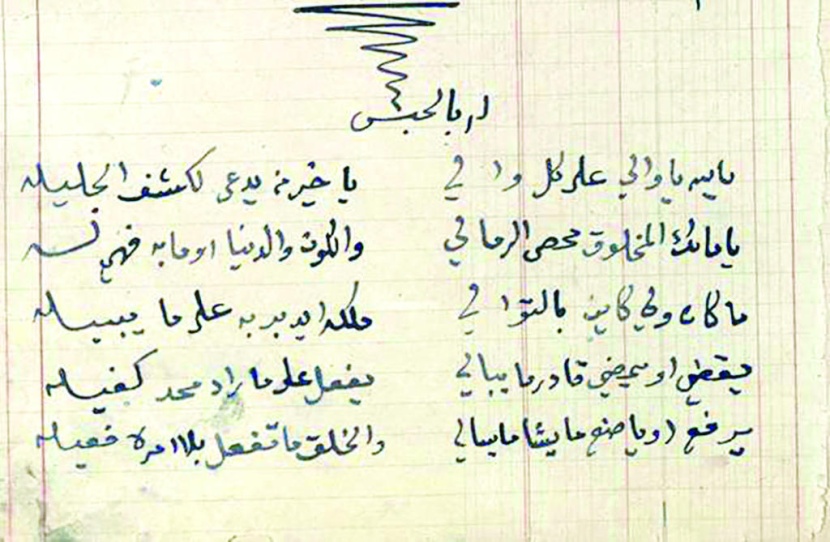 لـ با لحبس
يا الله يا والي على كل والي يا خير من يدعى لكشف الجليله
يا مالك المخلوق محصي الرمالي والكون والدنيا او ما به فهي له
ما كان ولي كاين بالتوالي ملكه ايدبر به على ما يبي له
يقطي او يمضي قادر ما يبالي يفعل على ما راد محد كفيله
يرفع او ياضع ما يشا ما يبالي والخلق ما تفعل بلا امره فعيله